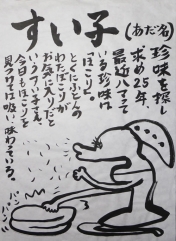 すい子(あだ名)
珍味を探し
求め25年、
最近ハマって
いる珍味は
「ほこり」。
とくにふとんの
わたぼこりが
お気に入りだと
いうすい子さん。
今日もほこりを
見つけては吸い味わっている。
パン
パン